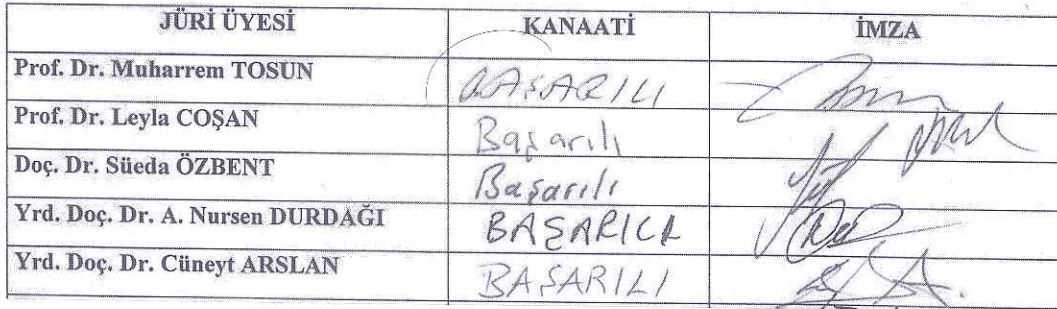 JÜRİ ÜYESİ KANAATİ İMZA
Prof. Dr. Muharrem TOSUN BAŞARILI
Prof. Dr. Leyla COŞAN Başarılı
Doç. Dr. Süeda ÖZBENT Başarılı
Yrd. Doç. Dr. A. Nursen DURDAĞI BAŞARILI
Yrd. Doç. Dr. Cüneyt ARSLAN BAŞARILI